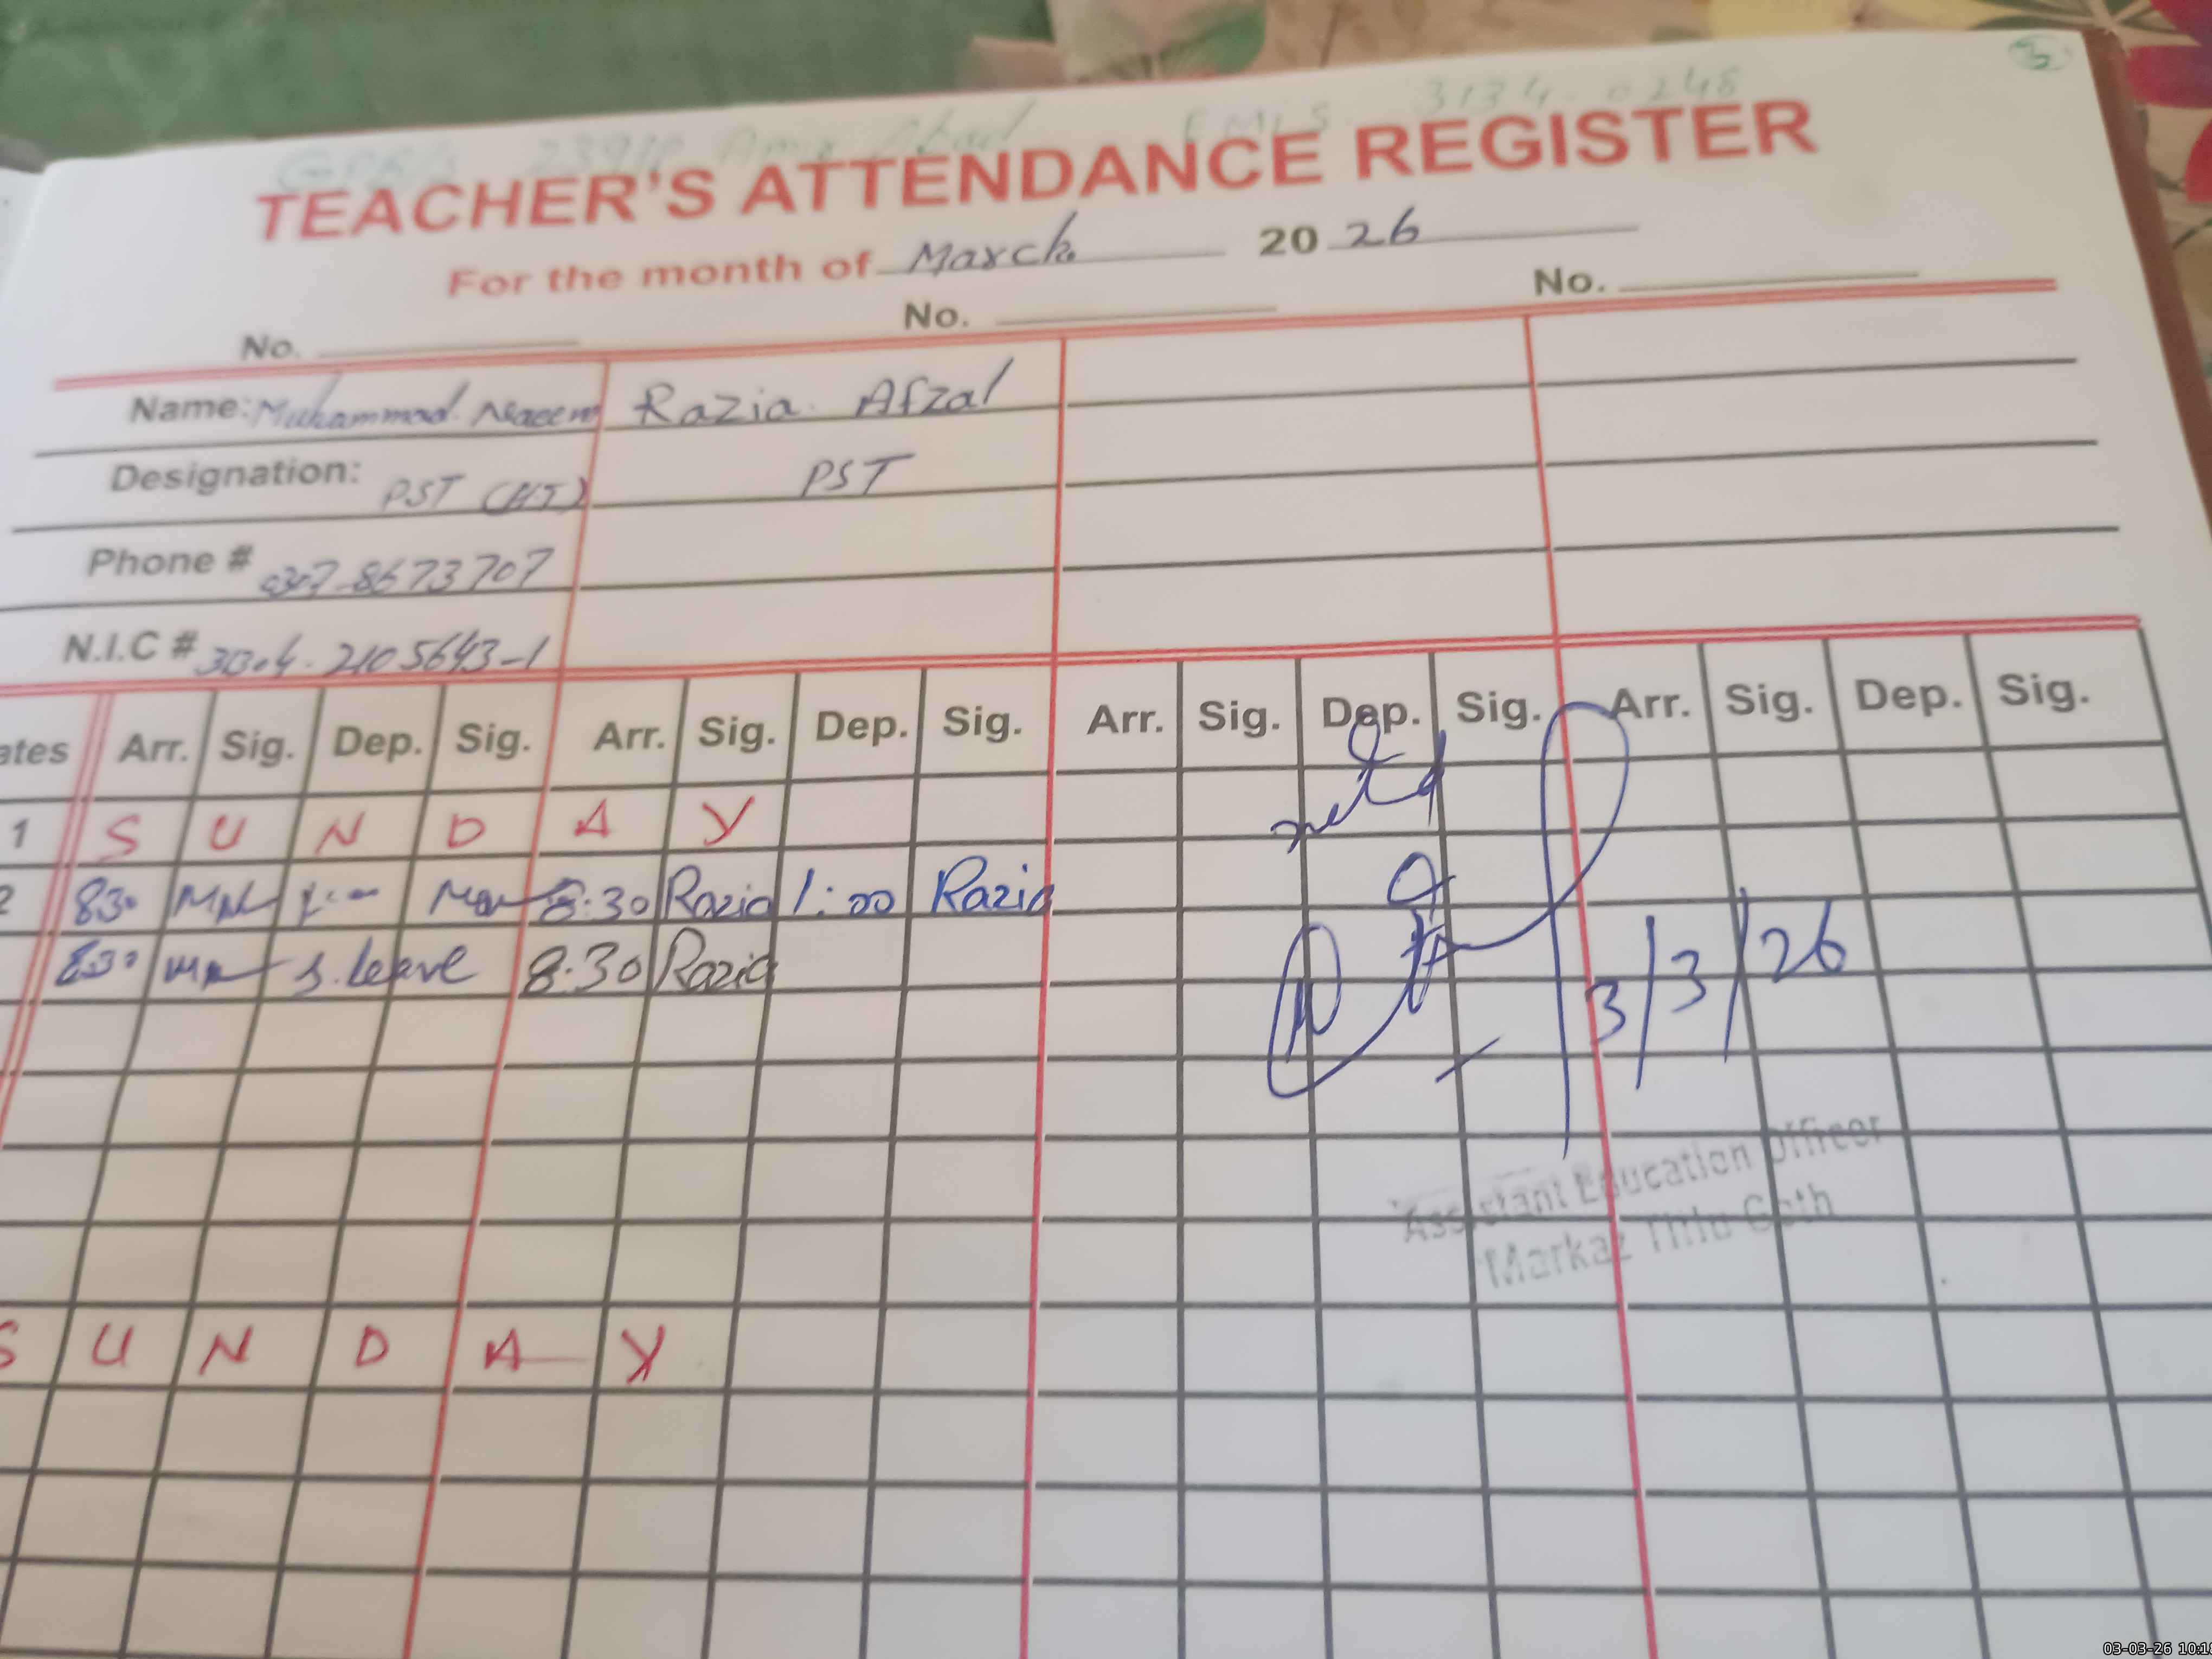 3
EMIS 3134.0248
TEACHER'S ATTENDANCE REGISTER
For the month of March 2026
No. No. No.
Name: Muhammad Naeem Razia Afzal
Designation: PST (HT) PST
Phone # 0307-8673707
N.I.C #
ates Arr. Sig. Dep. Sig. Arr. Sig. Dep. Sig. Arr. Sig. Dep. Sig. Arr. Sig. Dep. Sig.
1 S U N D A Y
2 8:30 8:30 Razia 1:00 Razia
8:30 S. leave 8:30 Razia
3/3/26
Assistant Education Officer
Markaz Goth
S U N D A Y
03-03-26 10:1